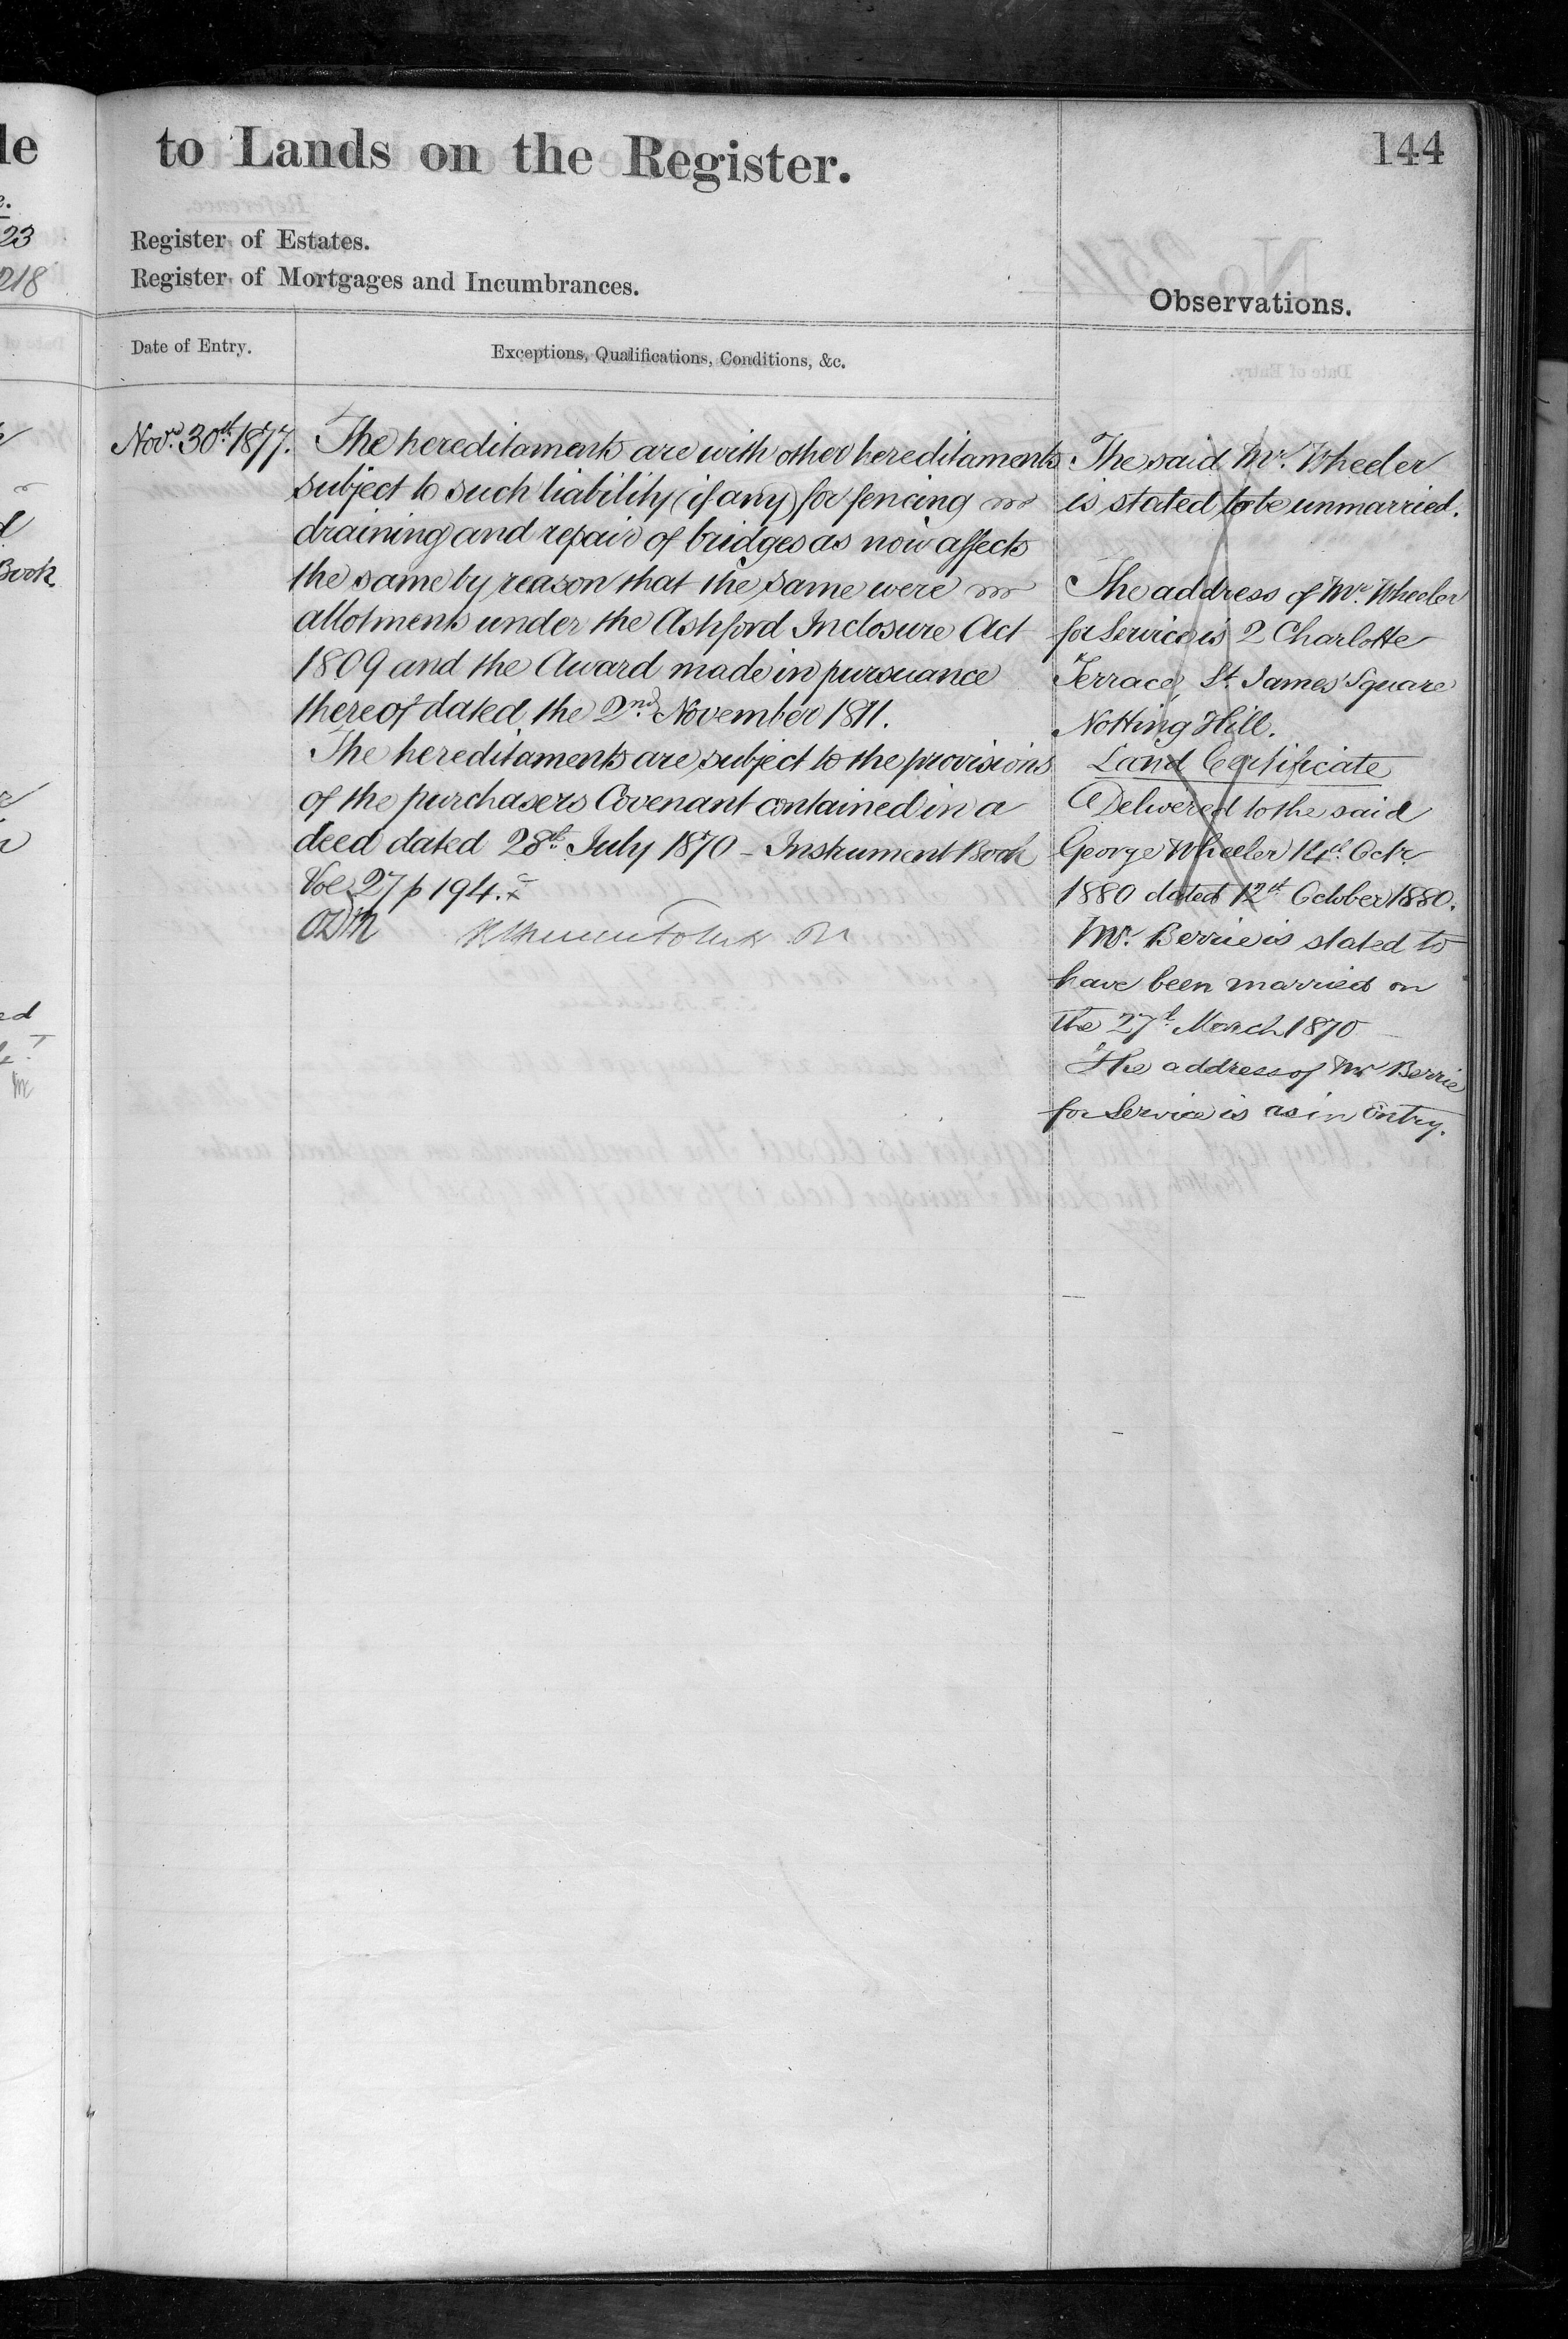 to Lands on the Register.
144
Register of Estates.
Register of Mortgages and Incumbrances.
Observations.
Date of Entry.
Exceptions, Qualifications, Conditions, &c.
Novr. 30th. 1877.
The hereditaments are with other hereditaments
subject to such liability (if any) for fencing
draining and repair of bridges as now affects
the same by reason that the same were
allotments under the Ashford Inclosure Act
1809 and the Award made in pursuance
thereof dated the 2nd. November 1811.
The hereditaments are subject to the provisions
of the purchasers Covenant contained in a
deed dated 28th. July 1870 - Instrument Book
Vol 27 p 194.
The said Mr. Wheeler
is stated to be unmarried.
The address of Mr. Wheeler
for Service is 2 Charlotte
Terrace, St. James' Square
Notting Hill.
Land Certificate
Delivered to the said
George Wheeler 14th. Octr.
1880 dated 12th October 1880.
Mr. Berrie is stated to
have been married on
the 27th. March 1870
The address of Mr Berrie
for Service is as in Entry.
le
23
218
Book